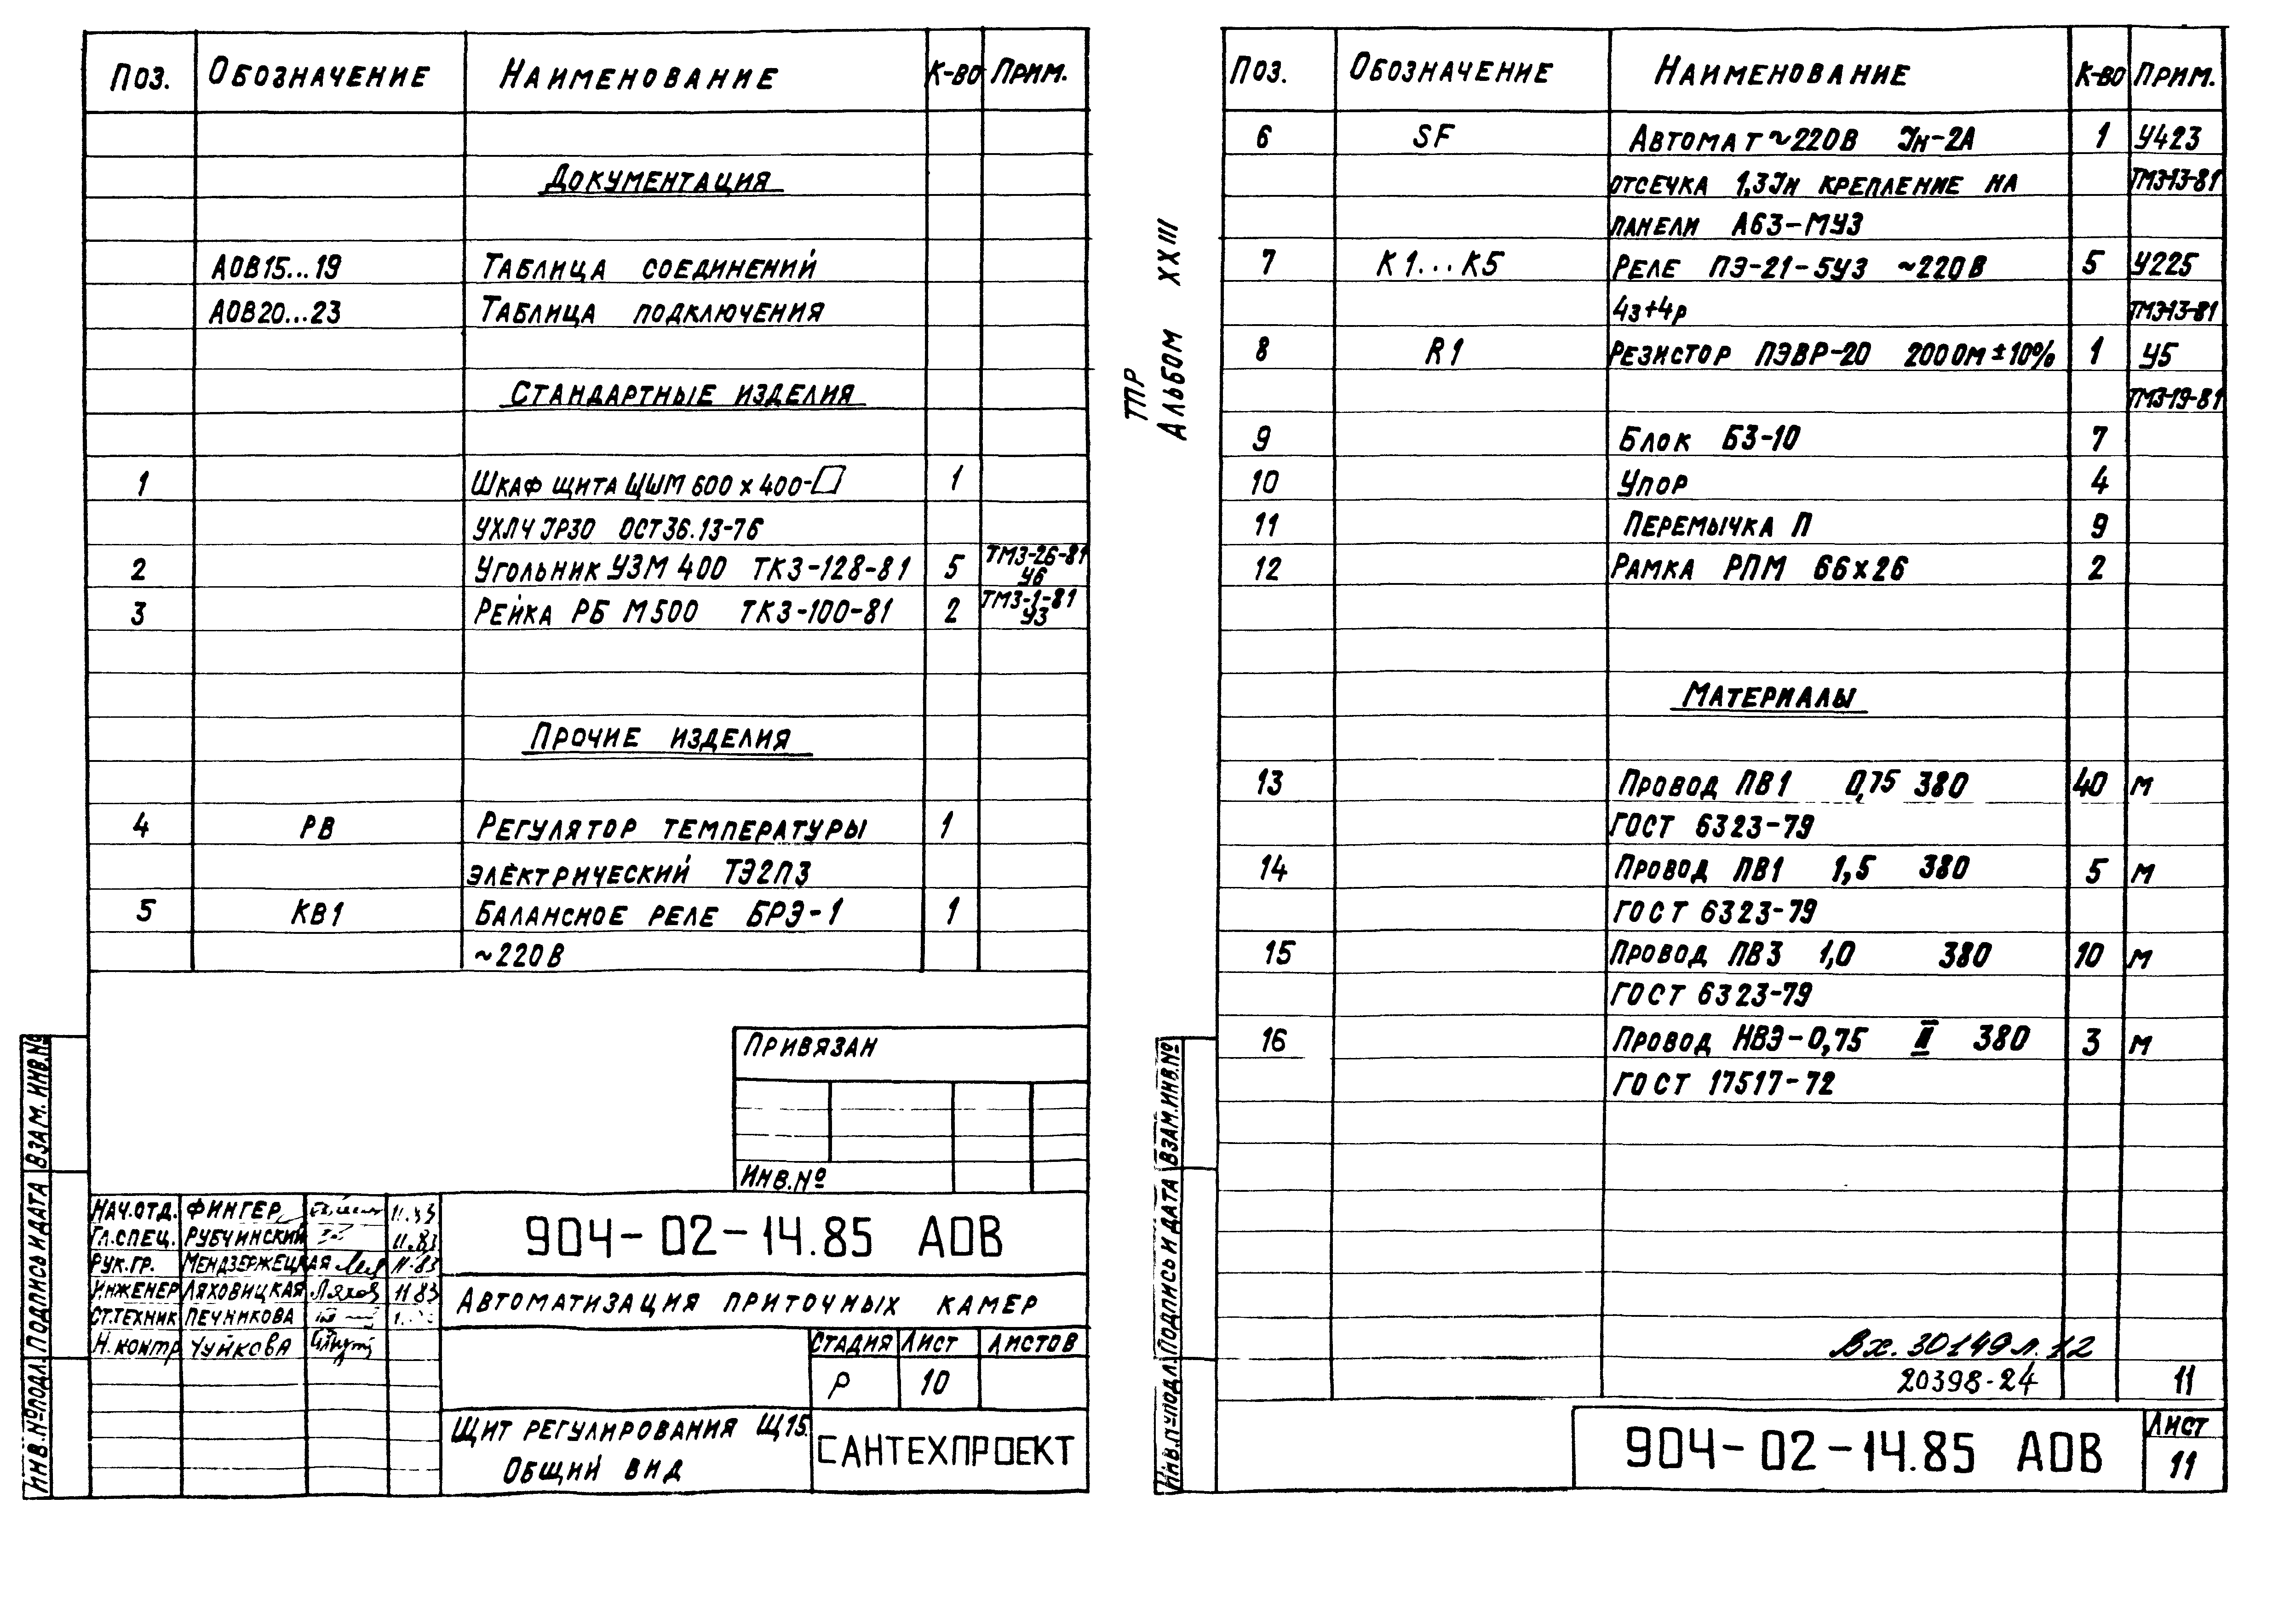 Поз. Обозначение Наименование К-во Прим.
Документация
АОВ15...19 Таблица соединений
АОВ20...23 Таблица подключения
Стандартные изделия
1 Шкаф щита ЩШМ 600х400-□ 1
УХЛЧ IР30 ОСТ36.13-76
2 Угольник УЗМ 400 ТКЗ-128-81 5 ТМЗ-26-81 У6
3 Рейка РБ М500 ТКЗ-100-81 2 ТМЗ-1-81 У3
Прочие изделия
4 РВ Регулятор температуры 1
электрический ТЭ2П3
5 КВ1 Балансное реле БРЭ-1 1
~220В
Привязан
Инв.№
Нач.отд. Фингер 11.83
Гл.спец. Рубчинский 11.83
Рук.гр. Мендзержецкая 11.83
Инженер Ляховицкая Ляхов 11.83
Ст.техник Печникова
Н.контр Чуйкова
904-02-14.85 АОВ
Автоматизация приточных камер
Стадия Лист Листов
Р 10
Щит регулирования Щ15.
Общий вид
САНТЕХПРОЕКТ
Инв.№подл. Подпись и дата Взам.инв.№
ТПР
Альбом XXIII
Поз. Обозначение Наименование К-во Прим.
6 SF Автомат ~220В Iн-2А 1 У423
отсечка 1,3Iн крепление на ТМЗ-13-81
панели А63-МУ3
7 К1...К5 Реле ПЭ-21-5У3 ~220В 5 У225
4з+4р ТМЗ-13-81
8 R1 Резистор ПЭВР-20 200 Ом ±10% 1 У5
ТМЗ-19-81
9 Блок БЗ-10 7
10 Упор 4
11 Перемычка П 9
12 Рамка РПМ 66х26 2
Материалы
13 Провод ПВ1 0,75 380 40 м
ГОСТ 6323-79
14 Провод ПВ1 1,5 380 5 м
ГОСТ 6323-79
15 Провод ПВ3 1,0 380 10 м
ГОСТ 6323-79
16 Провод НВЭ-0,75 II 380 3 м
ГОСТ 17517-72
Вх. 30149 л.12
20398-24 11
904-02-14.85 АОВ
Лист
11
Инв.№подл. Подпись и дата Взам.инв.№